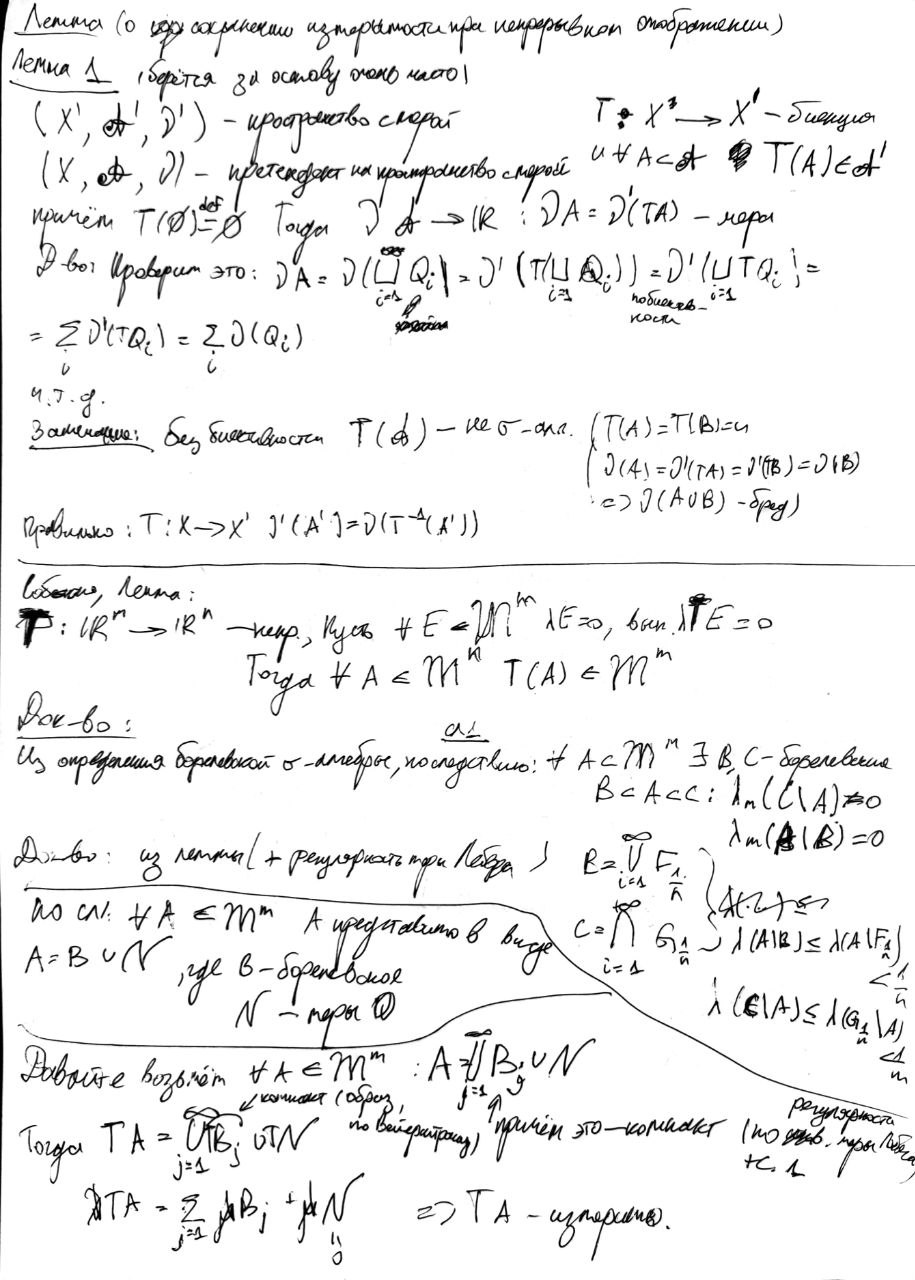 Лемма (о сохранении измеримости при непрерывном отображении)
Лемма 1 (берётся за основу очень часто)
(X', 𝒜', ν') – пространство с мерой
T: X → X' – биекция
(X, 𝒜, ν) – претендент на пространство с мерой
и ∀ A ⊂ 𝒜 T(A) ∈ 𝒜'
причём T(∅) def= ∅ Тогда ν 𝒜 → ℝ : νA = ν'(TA) – мера
Д-во: Проверим это: νA = ν(⊔_{i=1}^{∞} Q_i) = ν'(T(⊔_{i=1} Q_i)) = ν'(⊔_{i=1} TQ_i) =
по биективности
= Σ_i ν'(TQ_i) = Σ_i ν(Q_i)
ч.т.д.
Замечание: без биективности T(𝒜) – не σ-алг. (T(A) = T(B) = и
ν(A) = ν'(TA) = ν'(TB) = ν(B)
=> ν(A∪B) – бред)
Правильно: T: X → X' ν'(A') = ν(T⁻¹(A'))
Собственно, Лемма:
T: ℝᵐ → ℝⁿ – непр., Пусть ∀ E ∈ 𝔐ᵐ λE = 0, вып. λTE = 0
Тогда ∀ A ∈ 𝔐ⁿ T(A) ∈ 𝔐ᵐ
Док-во:
сл.1
Из определения борелевской σ-алгебры, по следствию: ∀ A ⊂ 𝔐ᵐ ∃ B, C – борелевские
B ⊂ A ⊂ C : λₘ(C \ A) = 0
λₘ(A \ B) = 0
Док-во: из леммы (+ регулярность меры Лебега)
B = ⋃_{i=1}^{∞} F_{1/n}
C = ⋂_{i=1}^{+∞} G_{1/n}
λ(A\B) ≤ λ(A\F_{1/n}) < 1/n
λ(C\A) ≤ λ(G_{1/n}\A) < 1/m
по сл1: ∀ A ∈ 𝔐ᵐ A представимо в виде
A = B ∪ N, где B – борелевское
N – меры 0
Давайте возьмём ∀ A ∈ 𝔐ᵐ : A = ⋃_{j=1}^{∞} B_j ∪ N
компакт (образ, по Вейерштрассу)
причём это – компакт (по регулярности меры Лебега + с. 1
Тогда TA = ⋃_{j=1}^{∞} TB_j ∪ TN
λTA = Σ_{j=1} B_j + N = 0 => TA – измеримо.